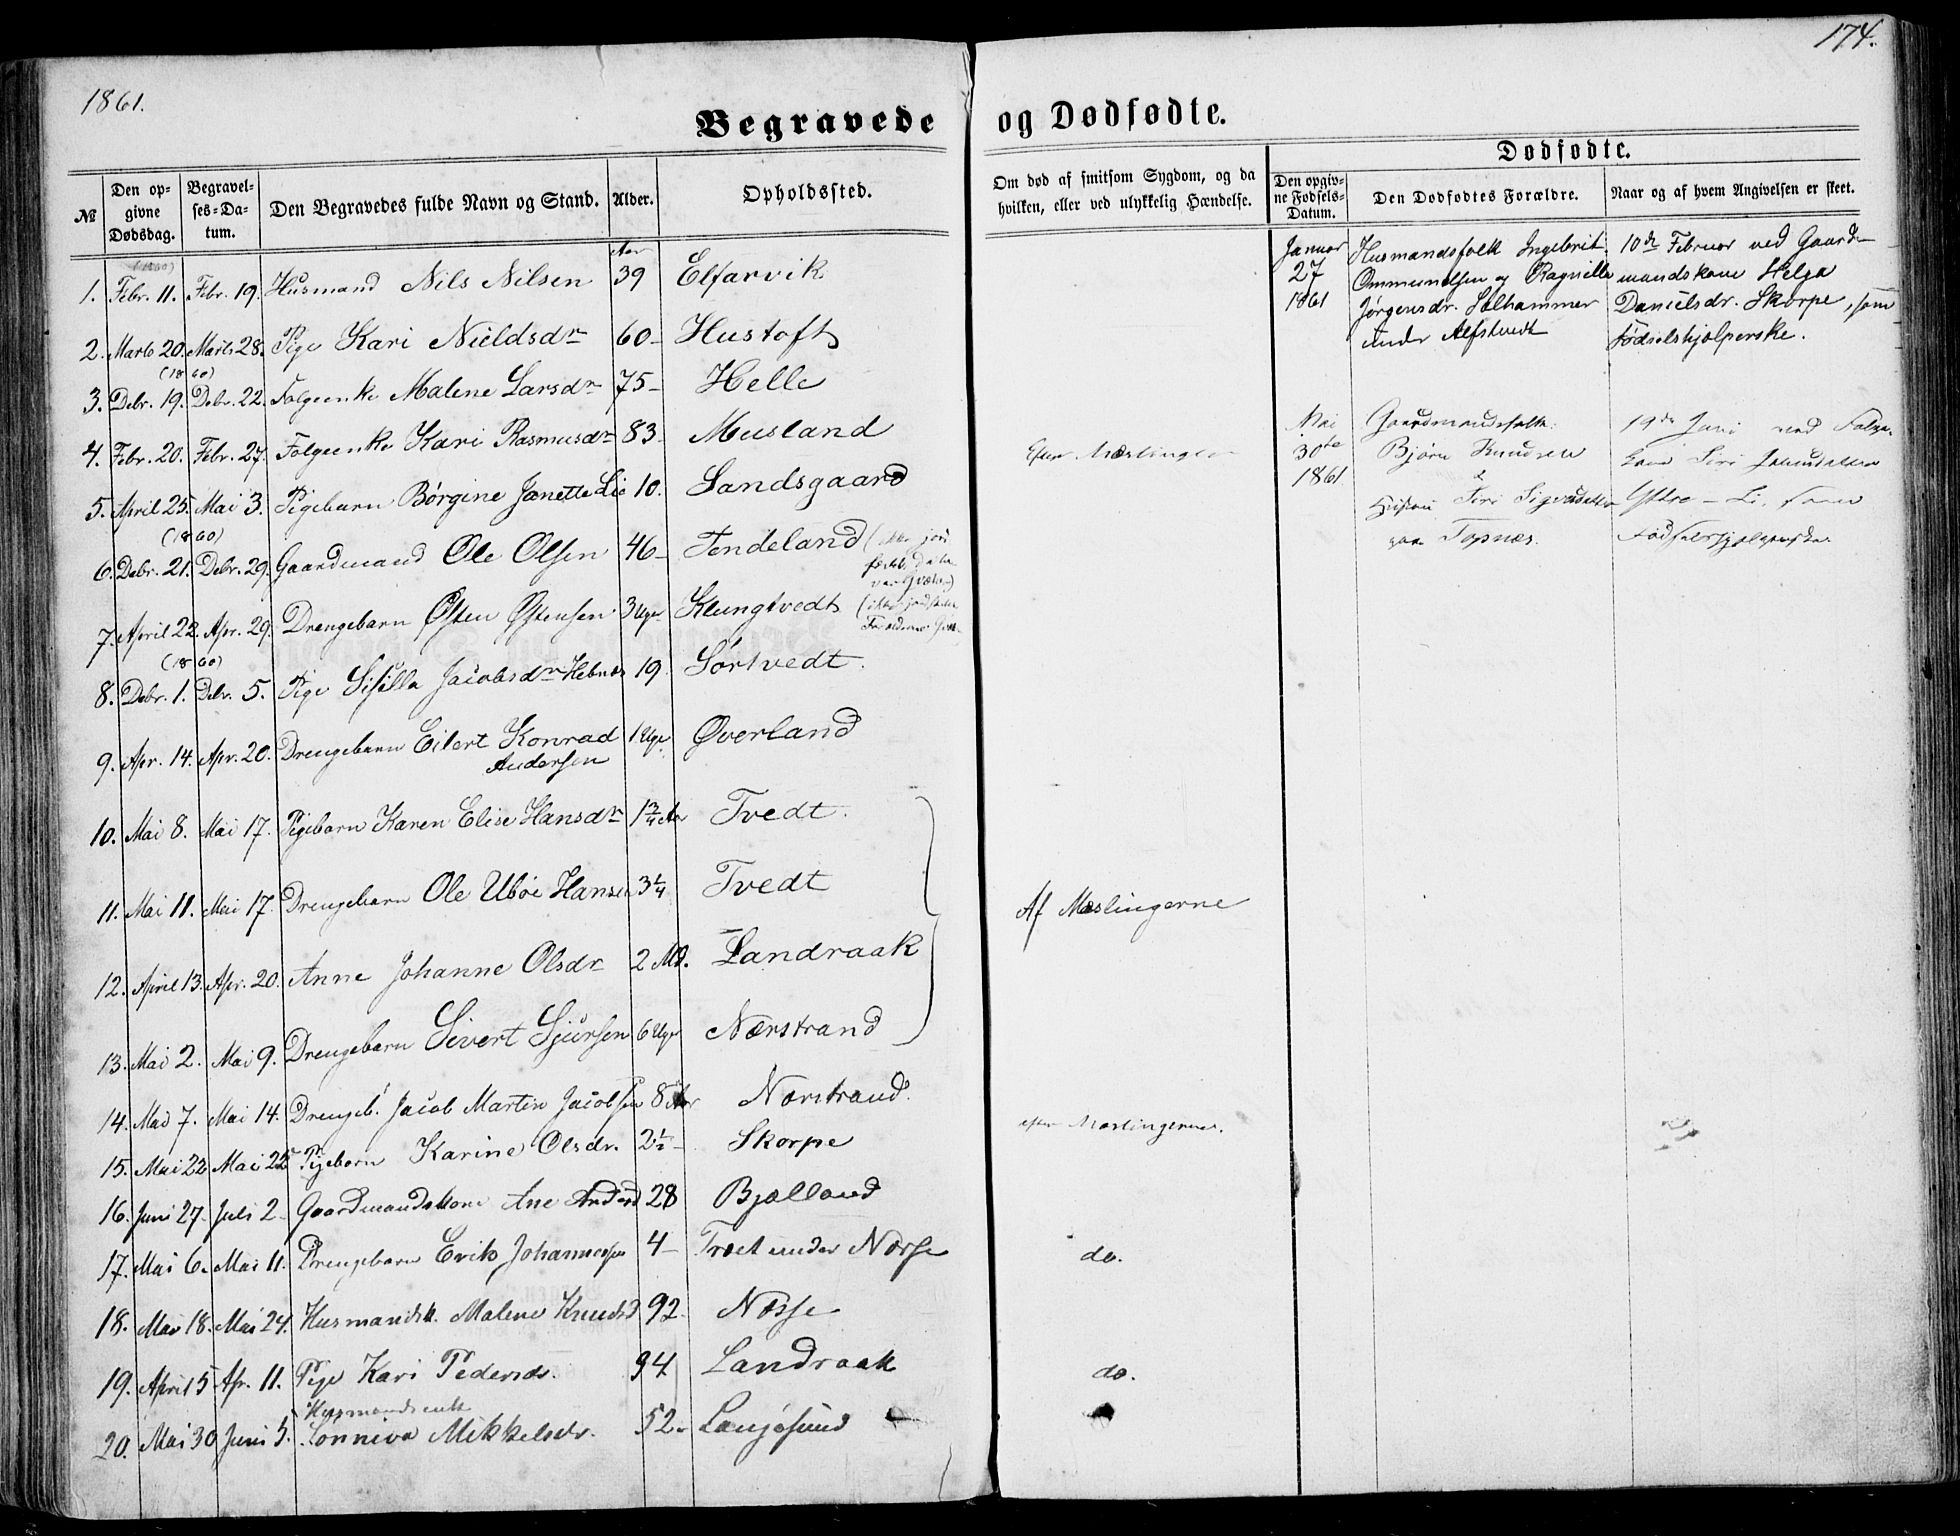 1861.
174.
Begravede og Dødfødte.
№
Den opgivne Dødsdag.
Begravelses-Datum.
Den Begravedes fulde Navn og Stand.
Alder.
Opholdssted.
Om død af smitsom Sygdom, og da hvilken, eller ved ulykkelig Hændelse.
Dødfødte.
Den opgivne Fødsels-Datum.
Den Dødfødtes Forældre.
Naar og af hvem Angivelsen er skeet.
(1860)
Aar
1. Febr. 11. Febr. 19. Husmand Nils Nilsen 39 Elfarvik
2. Marts 20. Marts 28. Pige Kari Nieldsdr 60 - Hustoft
(1860)
3. Debr. 19. Debr. 22. Folgeenke Malene Larsdr 75 - Helle
4. Febr. 20. Febr. 27. Folgeenke Kari Rasmusdr 83 - Musland
5. April 25. Mai 3. Pigebarn Børgine Janette Lie 10. Sandsgaard Efter Mæslinger
(1860)
6. Debr. 21. Debr. 29. Gaardmand Ole Olsen 46 - Tendeland
7. April 22. Apr. 29. Drengebarn Østen Østensen 3 Uger Klungtvedt
(1860)
8. Debr. 1. Debr. 5. Pige Sisilla Jacobsdr Hebnes 19 Sørtvedt.
9. Apr. 14. Apr. 20. Drengebarn Eilert Konrad Andersen 1 Uge Øverland
10. Mai 8. Mai 17. Pigebarn Karen Elise Hansdr 1 3/4 Aar Tvedt.
11. Mai 11. Mai 17. Drengebarn Ole Ubøe Hansen 3 1/4 Tvedt Af Mæslingerne
12. April 13. Apr. 20. Anne Johanne Olsdr 2 Md. Landraak
13. Mai 2. Mai 9. Drengebarn Sivert Sjursen 6 Uger Nærstrand
14. Mai 7. Mai 14. Drengeb. Jacob Martin Jacobsen 8 Aar Nærstrand.
15. Mai 22 Mai 25 Pigebarn Karine Olsdr. 2 1/2 - Skorpe efter Mæslingerne.
16. Juni 27. Juli 2 - Gaardmandskone Ane Andersd 28 Bjælland
17. Mai 6. Mai 11. Drengebarn Erik Johannesen 4 - Træet under Nærse do.
18. Mai 18. Mai 24. Husmandsk. Malene Knudsd 92. Næsse
19. April 5. Apr. 11. Pige Kari Pedersdr. 94 Landraak do.
Husmandsenke
20. Mai 30 Juni 5. Sønneva Mikkelsdr. 52 - Langøsund
Januar 27 1861
Husmandsfolk Ingebrit
Ommundsen og Ragnille
Jørgensdr. Solhammer
under Alfstvedt
10de Februar ved Gaard-
mandskone Helga
Danielsdr. Skorpe, som
Fødselshjælperske.
Mai 30te 1861
Gaardmandsfolk
Bjørn Knudsen
&
Hustru Siri Sigvaldsdatter
paa Topnæs.
19de Juni ved Folge-
kone Siri
Ystre - Li, som
Fødselshjelperske.